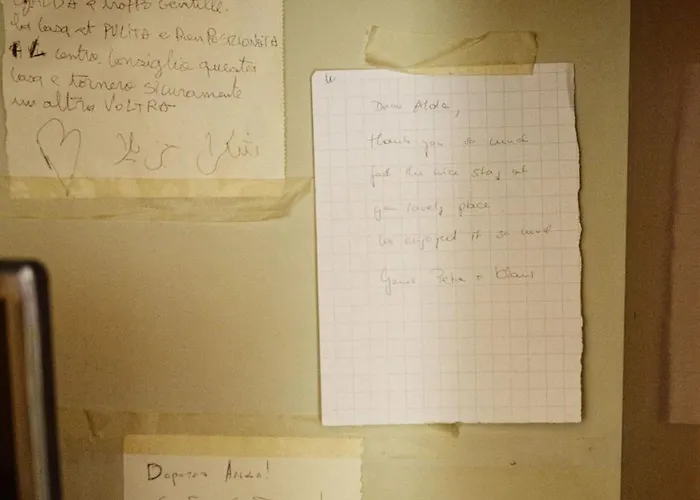 ALDA è troppo Gentille.
la casa et PULITA e Bien POSIZIONATA
AL centro. Consiglio questa
casa e tornero sicuramente
un altro VOLTRA
شكرا جزيلا
Dear Alda,
thank you so much
for the nice stay at
your lovely place.
We enjoyed it so much
Yours Petra + Klaus
Дорогая Алда!